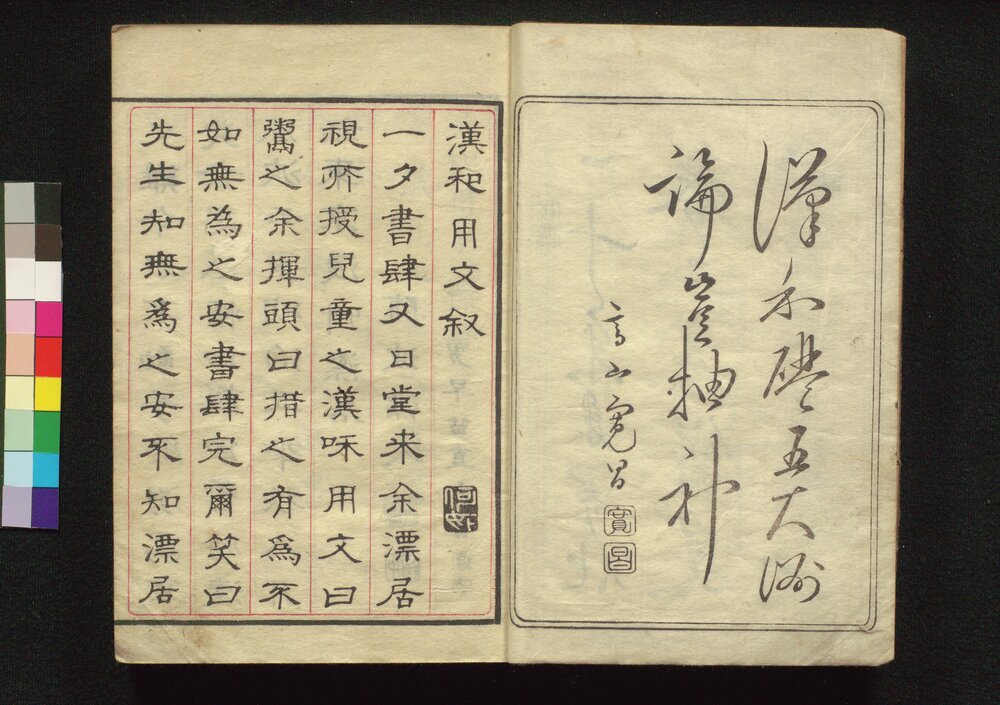 漢和五大洲
論
高山寛昌
寛昌
漢和用文叙
一夕書肆又日堂来余漂居
視所授兒童之漢咊用文曰
鬻之余揮頭曰措之有為不
如無為之安書肆完爾笑曰
先生知無為之安不知漂居